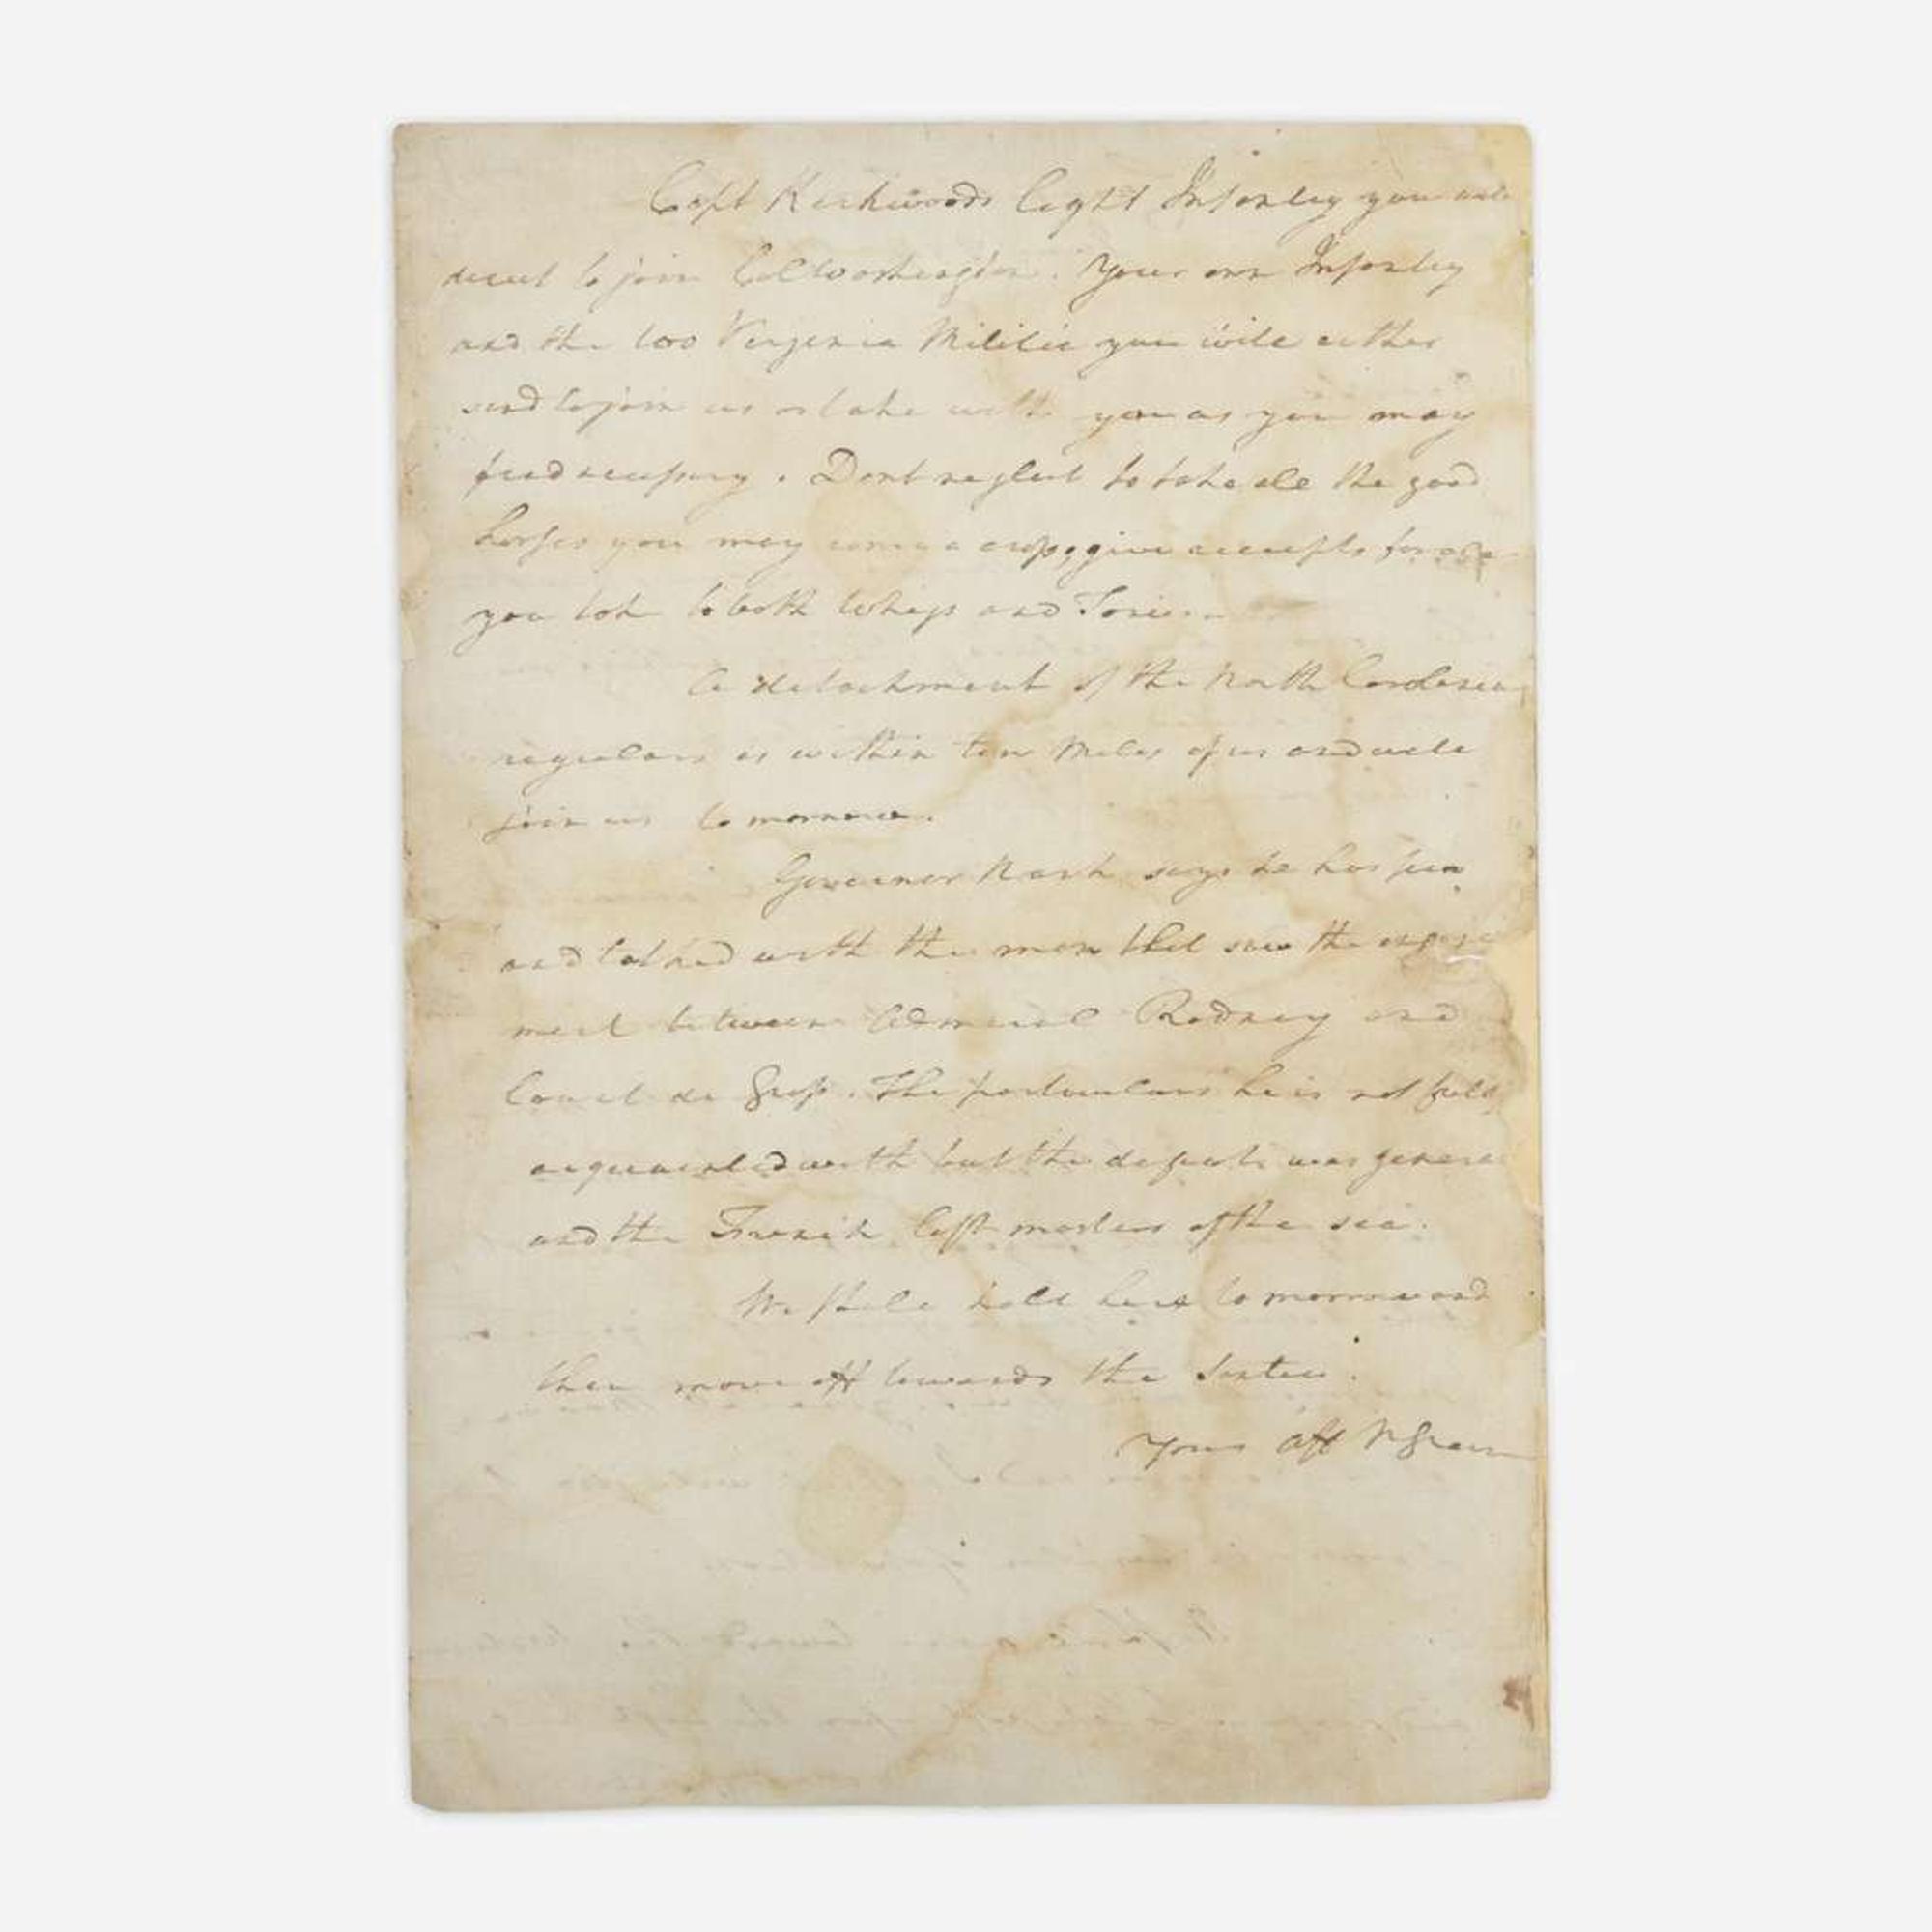 Capt Kirkwoods light Infantry you will
direct to join Col Washington. Your own Infantry
and the two Verginia Militia you will either
send to join us or take with you as you may
find necessary. Dont neglect to take all the good
horses you may come a cross, give receipts for all
you take to both Whigs and Tories.
A detachment of the North Carolinia
regulars is within ten Miles of us and will
join us to morrow.
Governor Nash says he has seen
and talked with the man that saw the engage
ment between Admiral Rodney and
Count de Grass. The particulars he is not fully
acquainted with but the defeat was general
and the French left masters of the sea.
We shall halt here to morrow and
then move off towards the Santee.
Yours aff N Greene